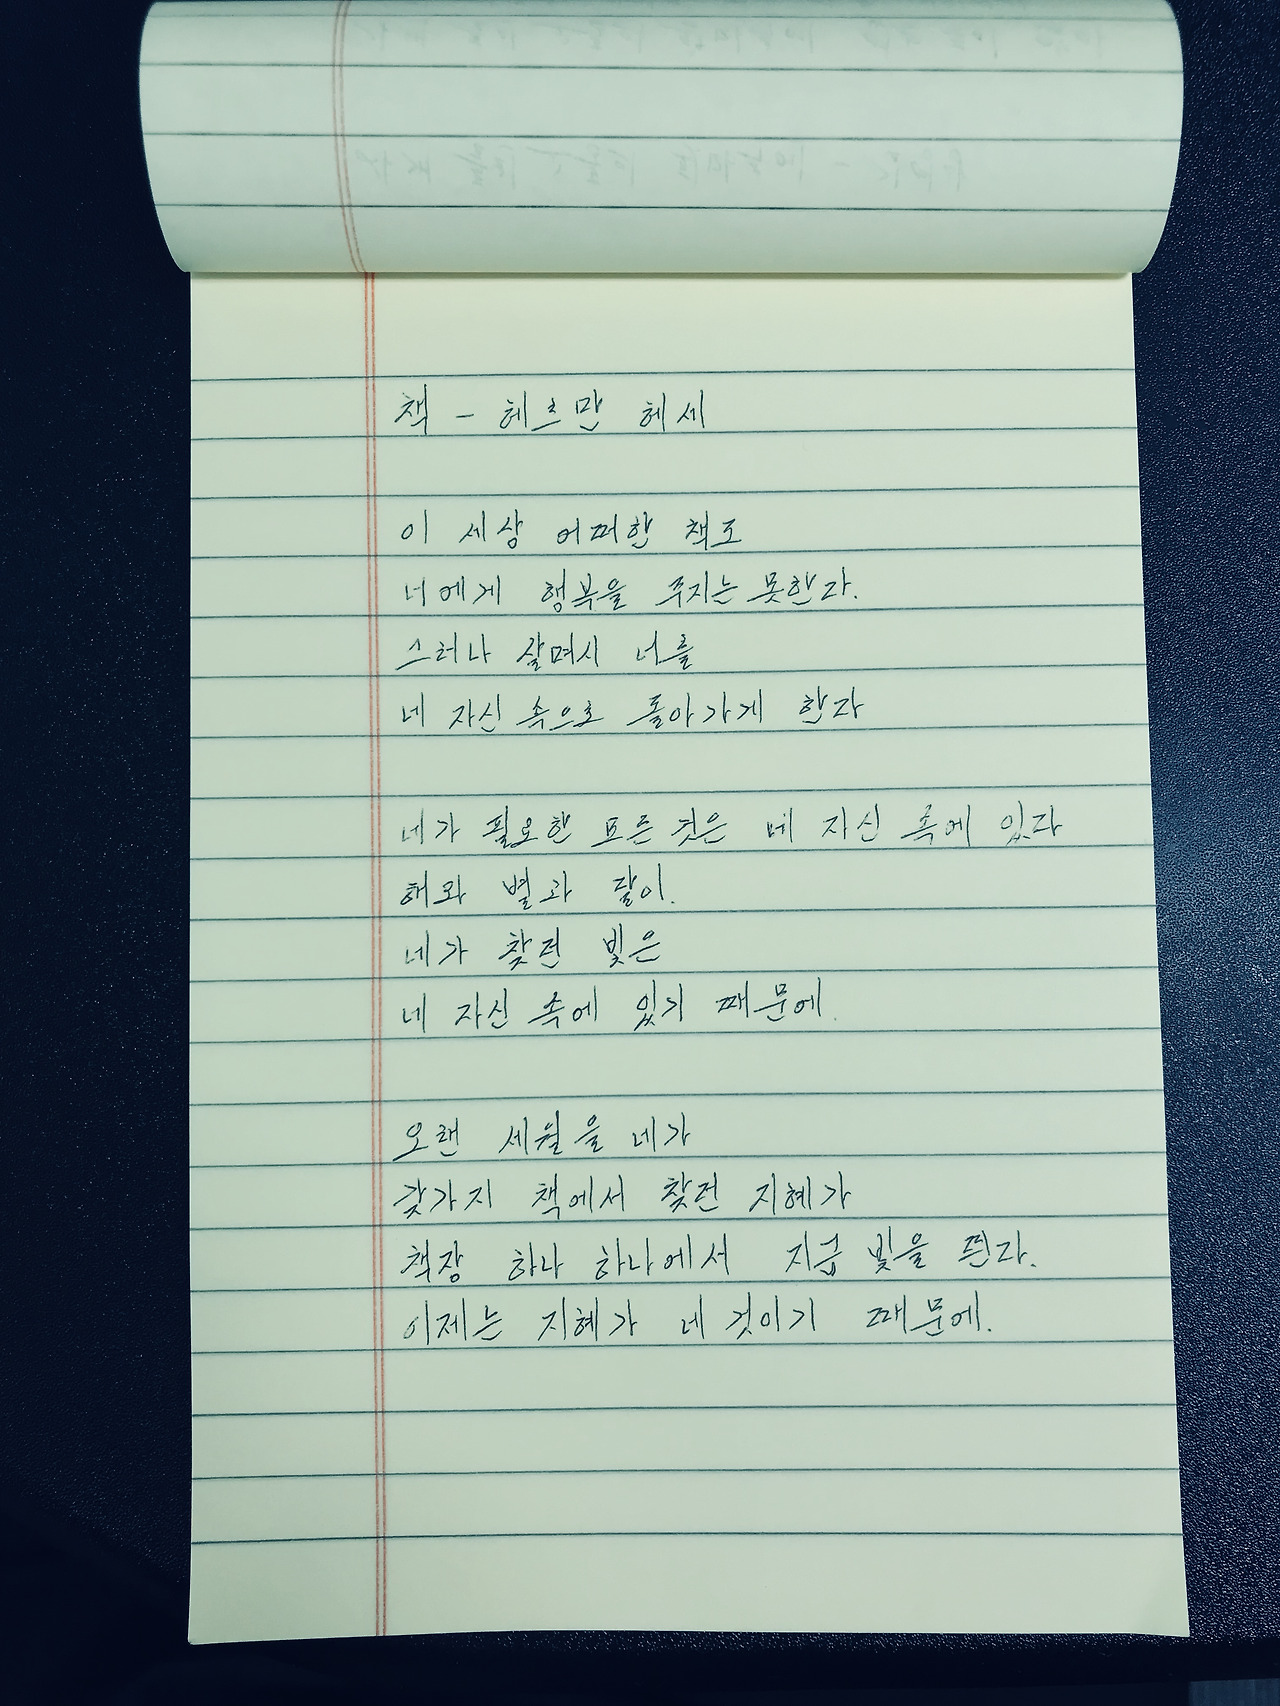 책 - 헤르만 헤세
이 세상 어떠한 책도
너에게 행복을 주지는 못한다.
그러나 살며시 너를
네 자신 속으로 돌아가게 한다
네가 필요한 모든 것은 네 자신 속에 있다
해와 별과 달이.
네가 찾던 빛은
네 자신 속에 있기 때문에.
오랜 세월을 네가
갖가지 책에서 찾던 지혜가
책장 하나 하나에서 지금 빛을 띈다.
이제는 지혜가 네 것이기 때문에.